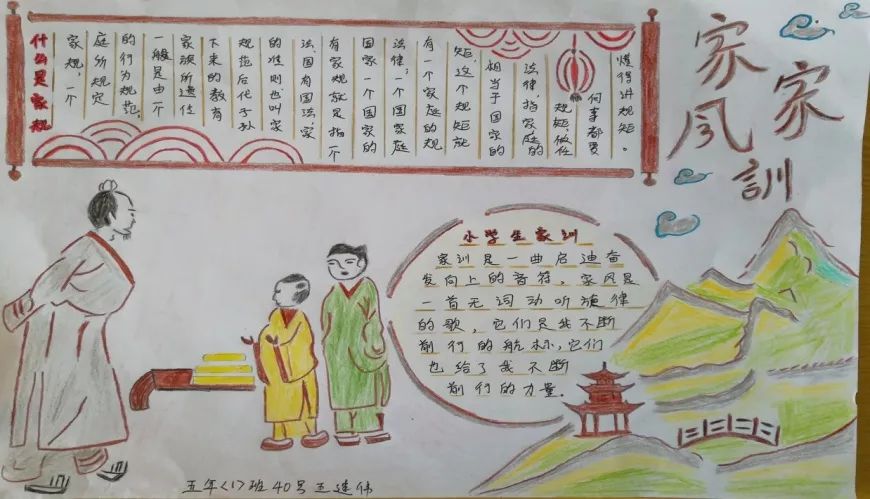 什么是家规
家规，一个
庭所规定
的行为规范，
一般是由一个
家族所遗传
下来的教育
规范后代子孙
的准则也叫家
法国有国法，家
有家规就是指一个
国家一个国家的
法律；一个国家庭
有一个家庭的规
矩，这个规矩就
相当于国家的
法律，指家庭的
规矩，做任
何事都要
懂得讲规矩。
家风
家訓
小学生家训
家训是一曲启迪奋
发向上的音符，家风是
一首无词动听旋律
的歌，它们是我不断
前行的航标，它们
也给了我不断
前行的力量。
五年<1>班40号